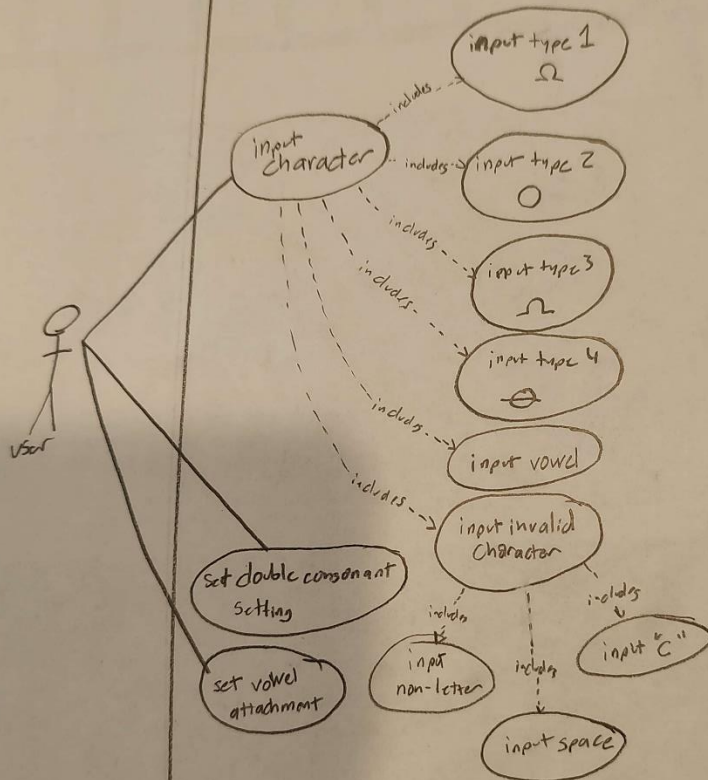 input type 1
Ω
includes
input
character
includes
input type 2
includes
input type 3
includes
input type 4
user
includes
input vowel
includes
input invalid
character
set double consonant
setting
includes
includes
input "C"
input
non-letter
includes
set vowel
attachment
input space